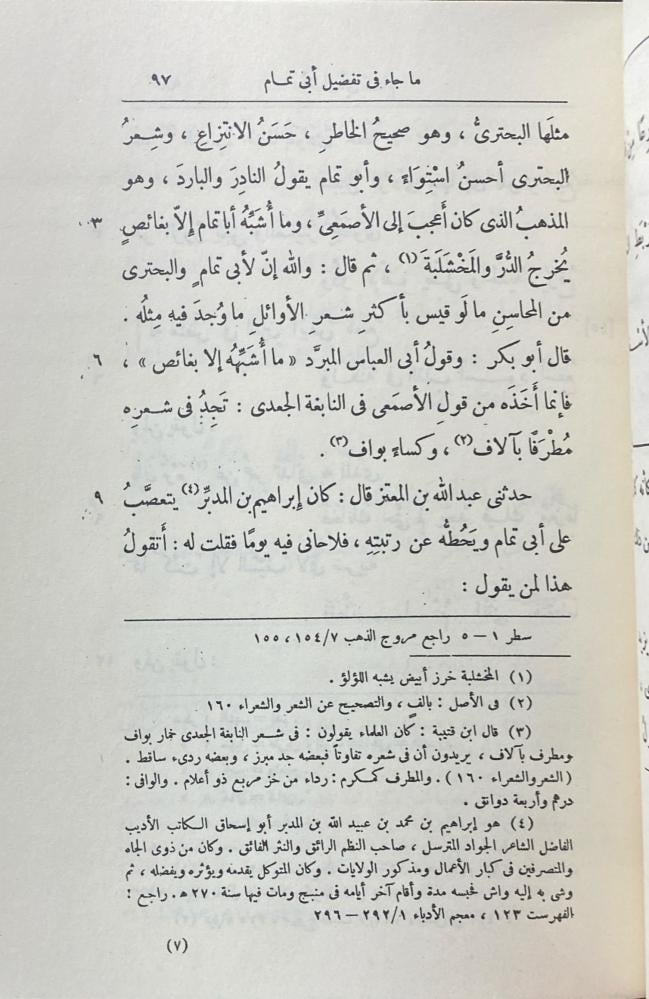 ما جاء فى تفضيل أبى تمام ٩٧
مثلَها البحترىُّ ، وهو صحيحُ الخاطرِ ، حَسَنُ الانتِزاعِ ، وشِعرُ
البحترى أحسنُ اسْتِواءً ، وأبو تمام يقولُ النادِرَ والباردَ ، وهو
المذهبُ الذى كان أَعجبَ إلى الأَصمَعِىِّ ، وما أُشَبِّهُ أباتمام إلاّ بغائصٍ ٣
يُخرجُ الدُّرَّ والمَخْشَلَبَةَ (١) ، ثم قال : والله إنّ لأبى تمامٍ والبحترى
من المحاسِنِ ما لَو قيس بأكثرِ شعرِ الأوائلِ ما وُجدَ فيهِ مِثلُه .
قال أبو بكر : وقولُ أبى العباس المبرَّد « ما أُشَبِّهُه إلا بغائص » ، ٦
فإنما أَخَذَه من قولِ الأصمَعى فى النابغة الجعدى : تَجِدُ فى شعرِه
مُطْرَفًا بآلاف(٢) ، وكساءً بواف(٣) .
حدثنى عبد الله بن المعتز قال : كان إبراهيم بن المدبِّر(٤) يتعصَّبُ ٩
على أبى تمام ويَحُطُّه عن رتبتِهِ ، فلاحانى فيه يومًا فقلت له : أَتقولُ
هذا لمن يقول :
سطر ١ – ٥ راجع مروج الذهب ١٥٤/٧ ، ١٥٥
(١) المخشلبة خرز أبيض يشبه اللؤلؤ .
(٢) فى الأصل : بالفٍ ، والتصحيح عن الشعر والشعراء ١٦٠
(٣) قال ابن قتيبة : كان العلماء يقولون : فى شعر النابغة الجعدى خمار بواف
ومطرف بآلاف ، يريدون أن فى شعره تفاوتاً فبعضه جد مبرز ، وبعضه ردىء ساقط .
( الشعر والشعراء ١٦٠ ) . والمطرف كمكرم : رداء من خز مربع ذو أعلام . والوافى :
درهم وأربعة دوانق .
(٤) هو إبراهيم بن محمد بن عبيد الله بن المدبر أبو إسحاق الكاتب الأديب
الفاضل الشاعر الجواد المترسل ، صاحب النظم الرائق والنثر الفائق . وكان من ذوى الجاه
والمتصرفين فى كبار الأعمال ومذكور الولايات . وكان المتوكل يقدمه ويؤثره ويفضله ، ثم
وشى به إليه واش فحبسه مدة وأقام آخر أيامه فى منبج ومات فيها سنة ٢٧٠ هـ . راجع :
الفهرست ١٢٣ ، معجم الأدباء ٢٩٢/١ – ٢٩٦
(٧)